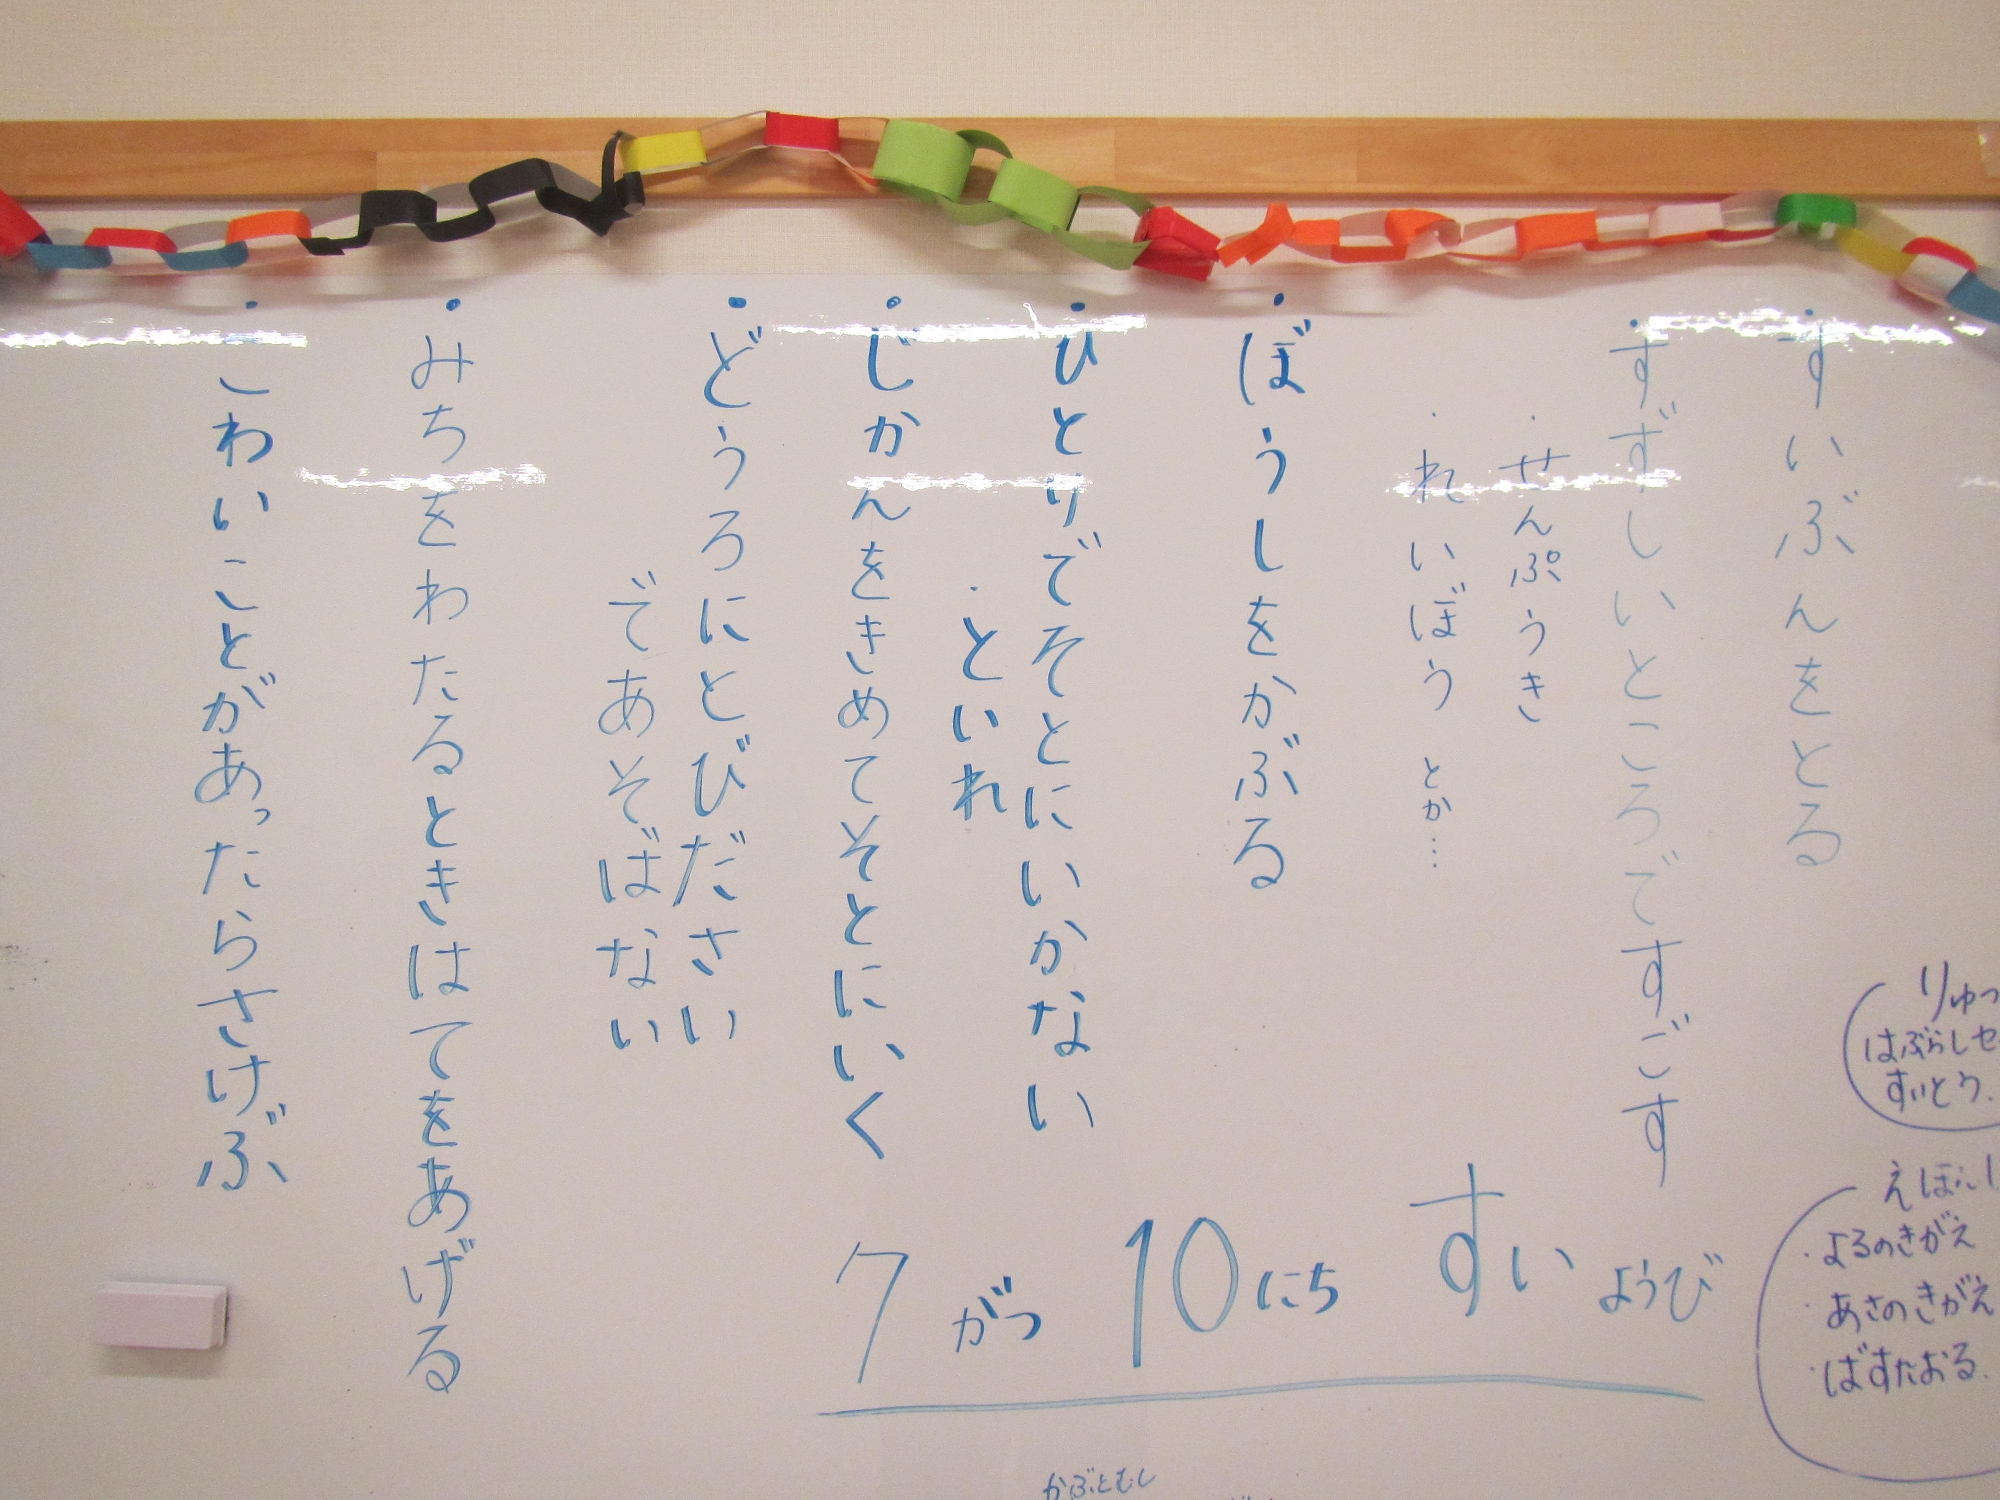 ・すいぶんをとる
・すずしいところですごす
・せんぷうき
・れいぼう とか…
・ぼうしをかぶる
・ひとりでそとにいかない
・といれ
・じかんをきめてそとにいく
・どうろにとびださい
であそばない
・みちをわたるときはてをあげる
・こわいことがあったらさけぶ
7がつ10にちすいようび
りゅっ
はぶらしセ
すいとう.
えほん
・よるのきがえ
・あさのきがえ
・ばすたおる.
かぶとむし